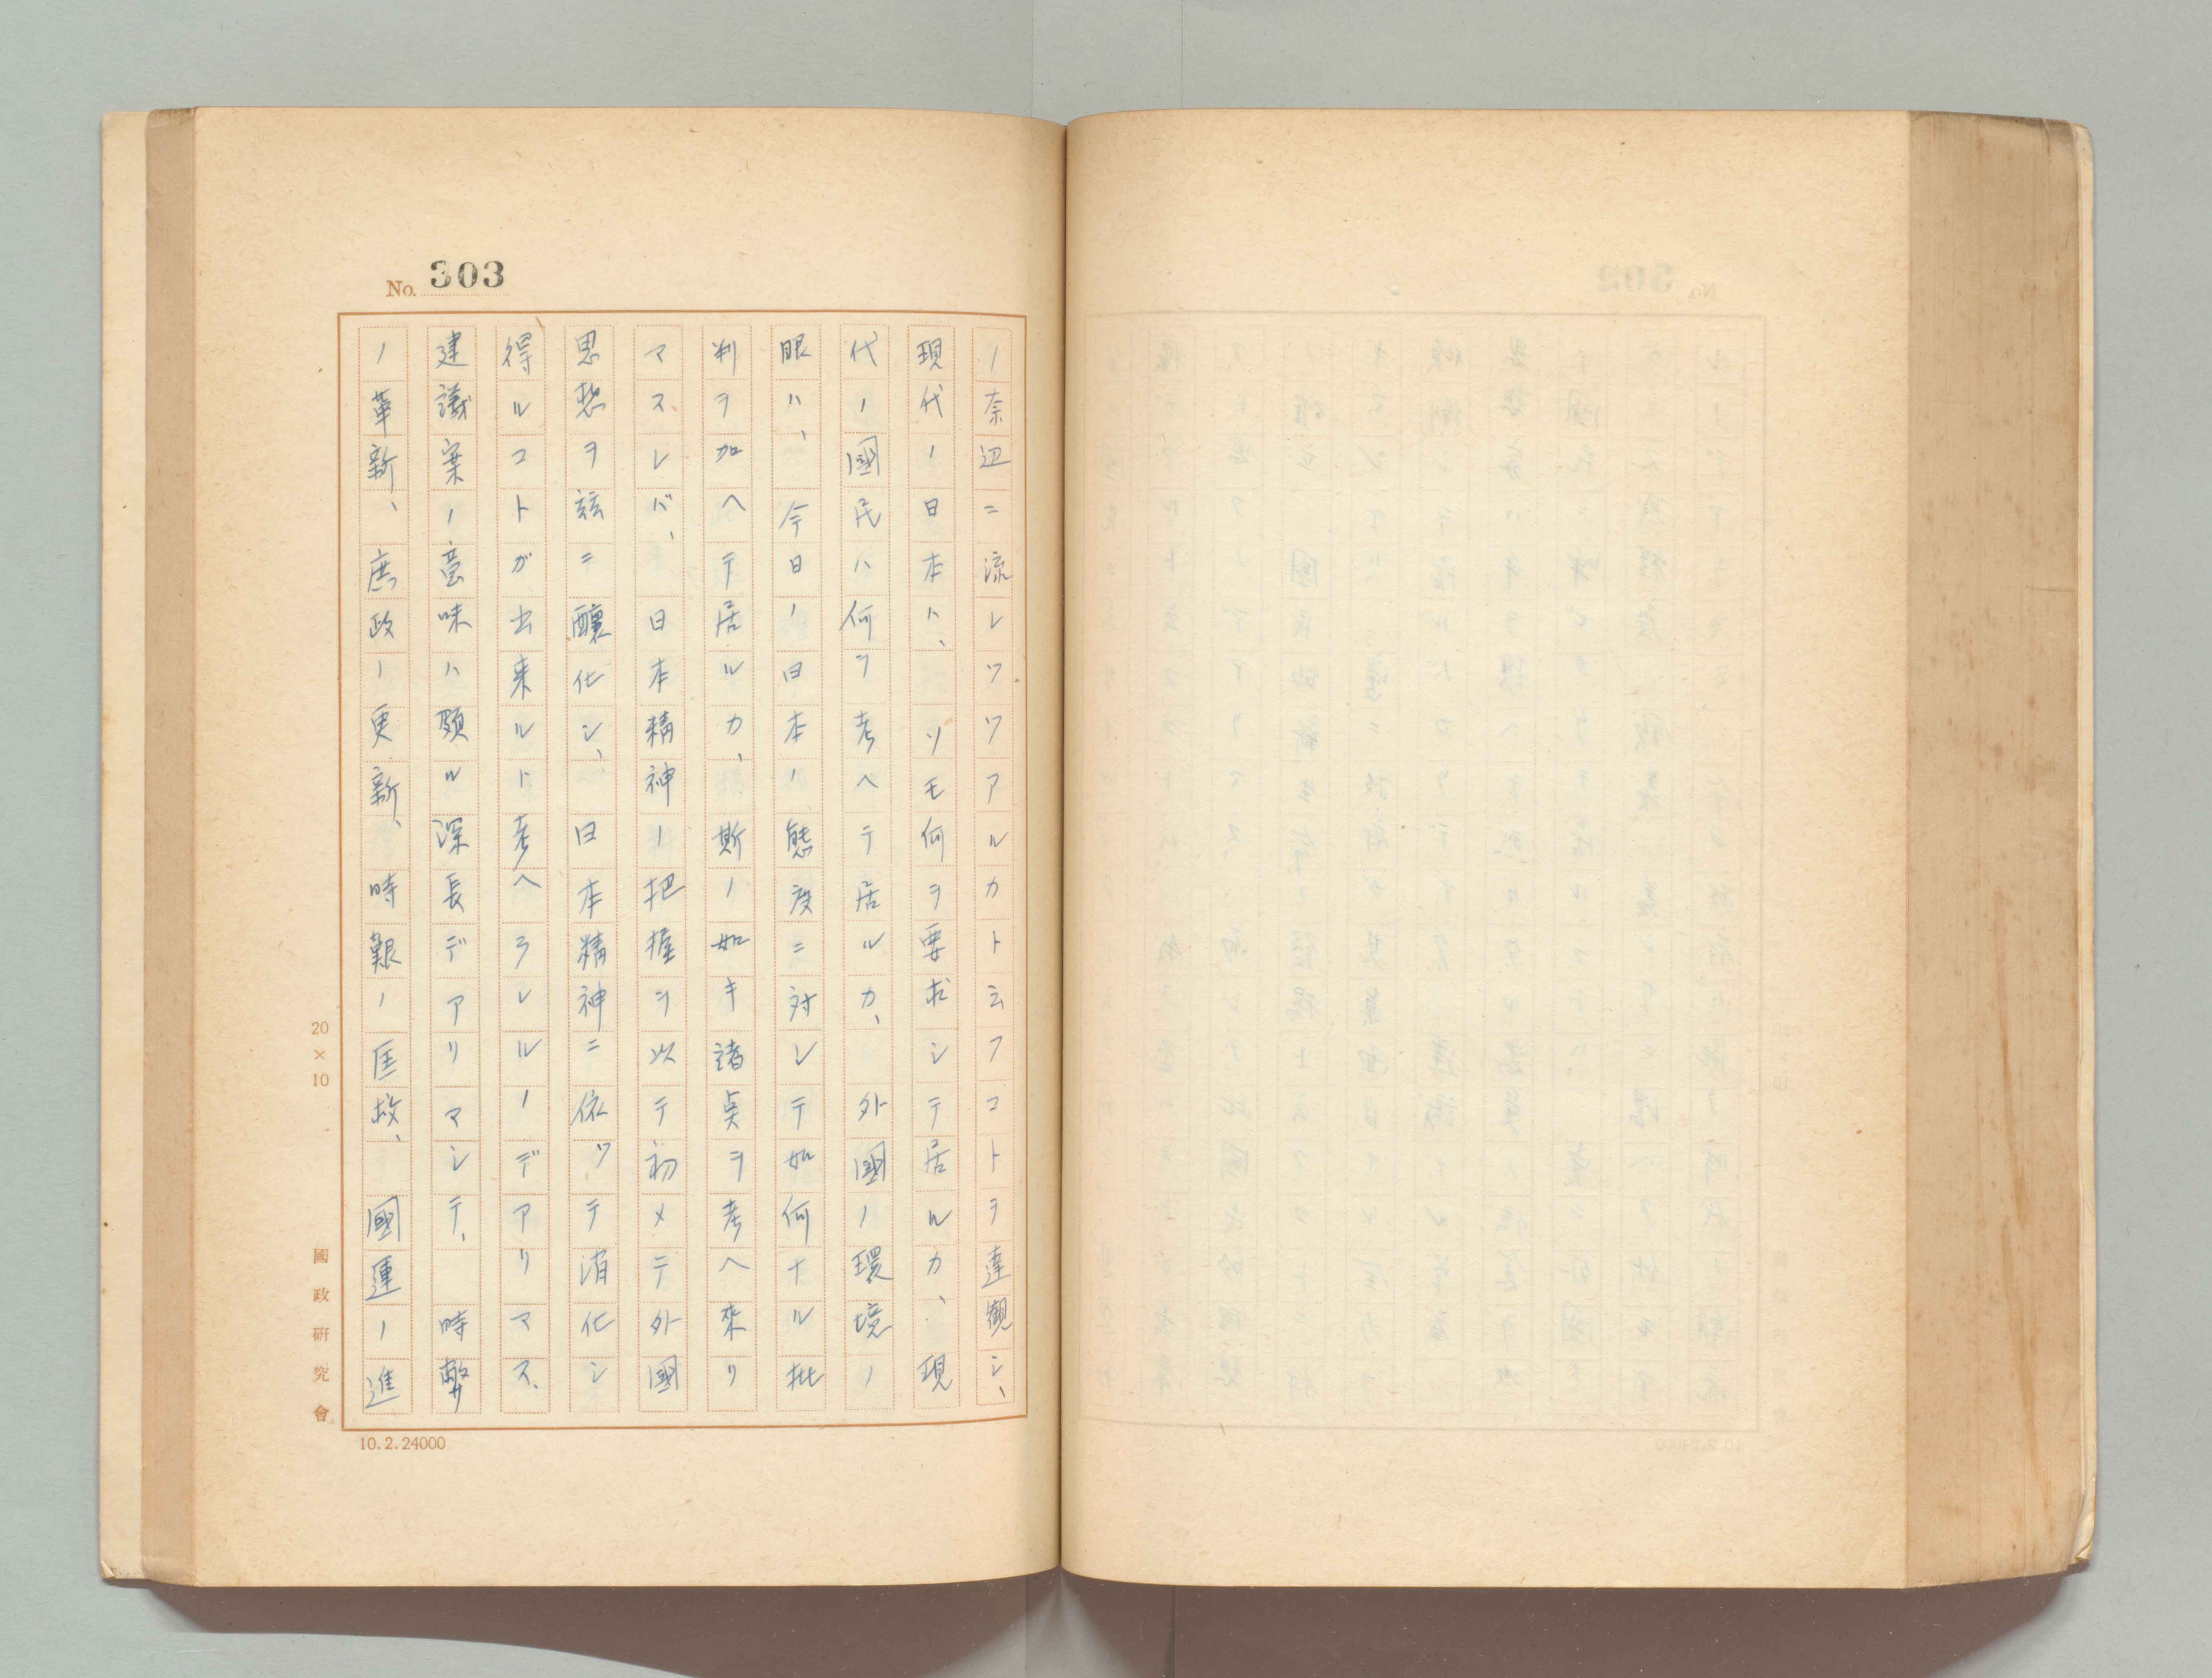 No. 303
ノ奈辺ニ流レツツアルカト云フコトヲ達観シ、
現代ノ日本ハ、ソモ何ヲ要求シテ居ルカ、現
代ノ國民ハ何ヲ考ヘテ居ルカ、外國ノ環境ノ
眼ハ、今日ノ日本ノ態度ニ対シテ如何ナル批
判ヲ加ヘテ居ルカ、斯ノ如キ諸点ヲ考ヘ來リ
マスレバ、日本精神ノ把握ヲ以テ初メテ外國
思想ヲ玆ニ醸化シ、日本精神ニ依ツテ消化シ
得ルコトガ出来ルト考ヘラレルノデアリマス、
建議案ノ意味ハ頗ル深長デアリマシテ、時弊
ノ革新、庶政ノ更新、時艱ノ匡救、國運ノ進
20×10
國政研究會
10.2.24000